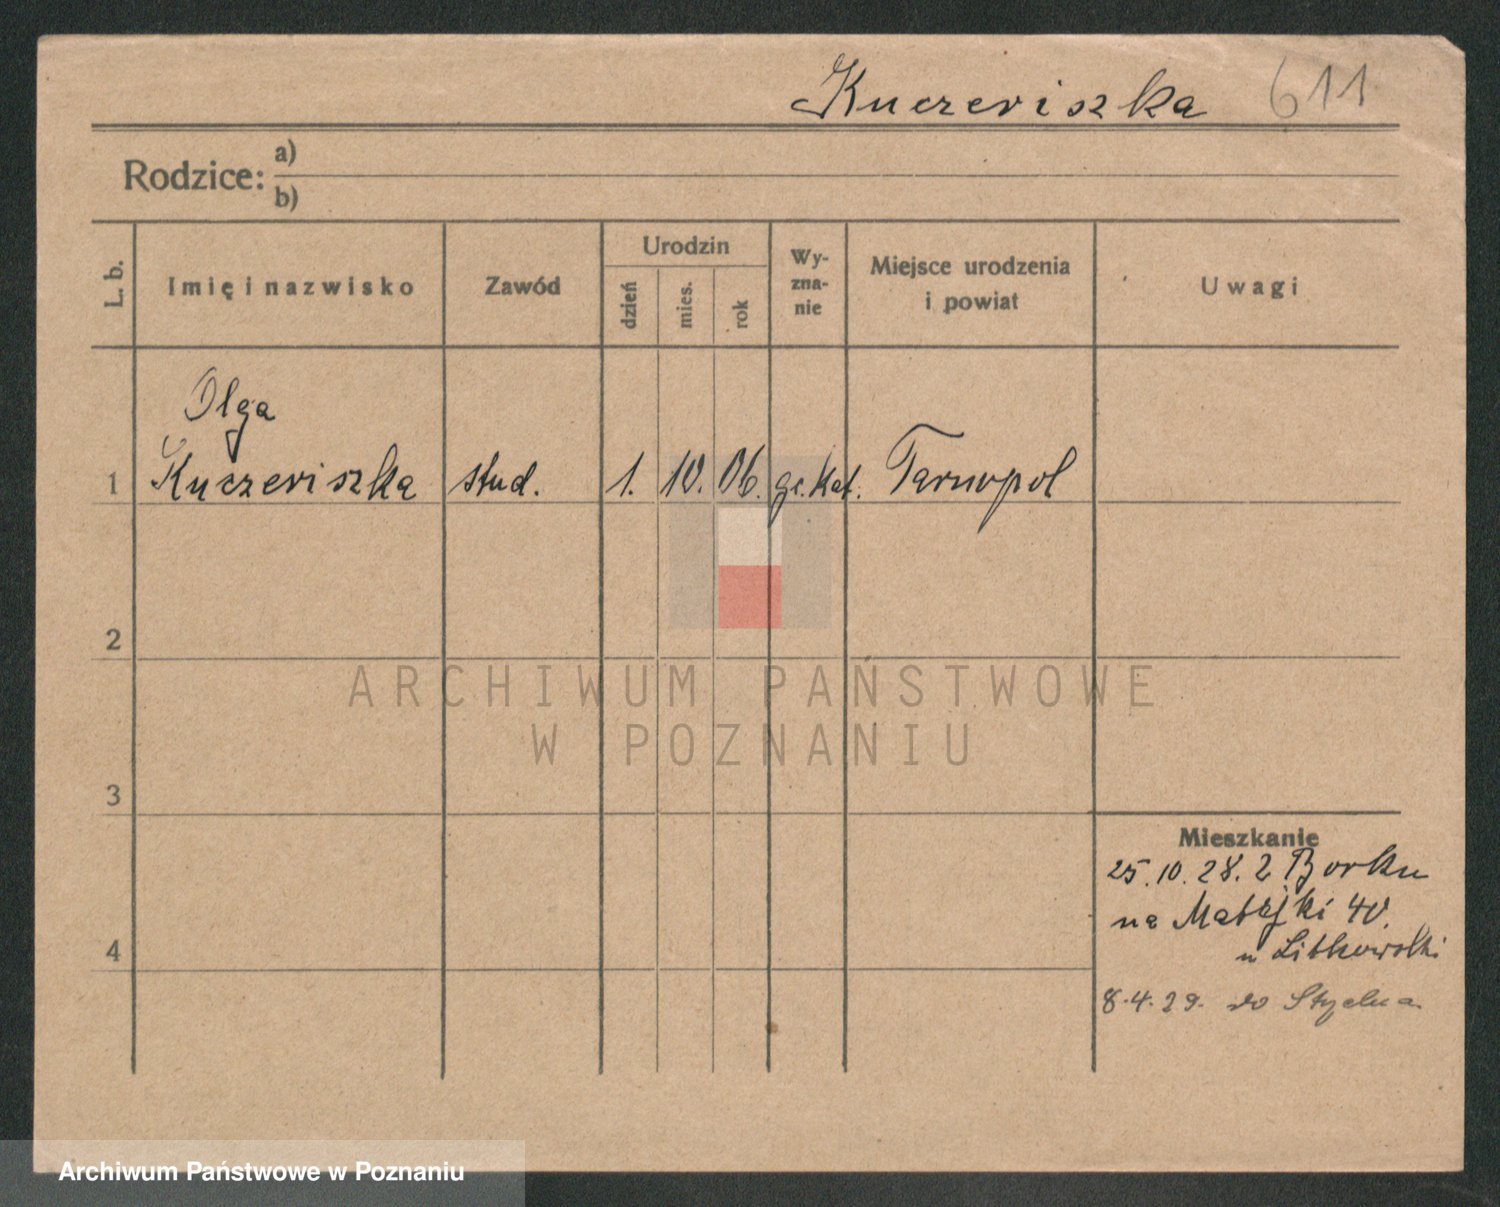 Kuczeriszka 611
Rodzice: a)
b)
L. b. Imię i nazwisko Zawód Urodzin dzień mies. rok Wy-zna-nie Miejsce urodzenia i powiat Uwagi
Olga
1 Kuczeriszka stud. 1. 10. 06. gr. kat. Tarnopol
2
ARCHIWUM PAŃSTWOWE
W POZNANIU
3
Mieszkanie
25.10.28. z Borku
na Matejki 40.
4
u
8.4.29. do
Archiwum Państwowe w Poznaniu